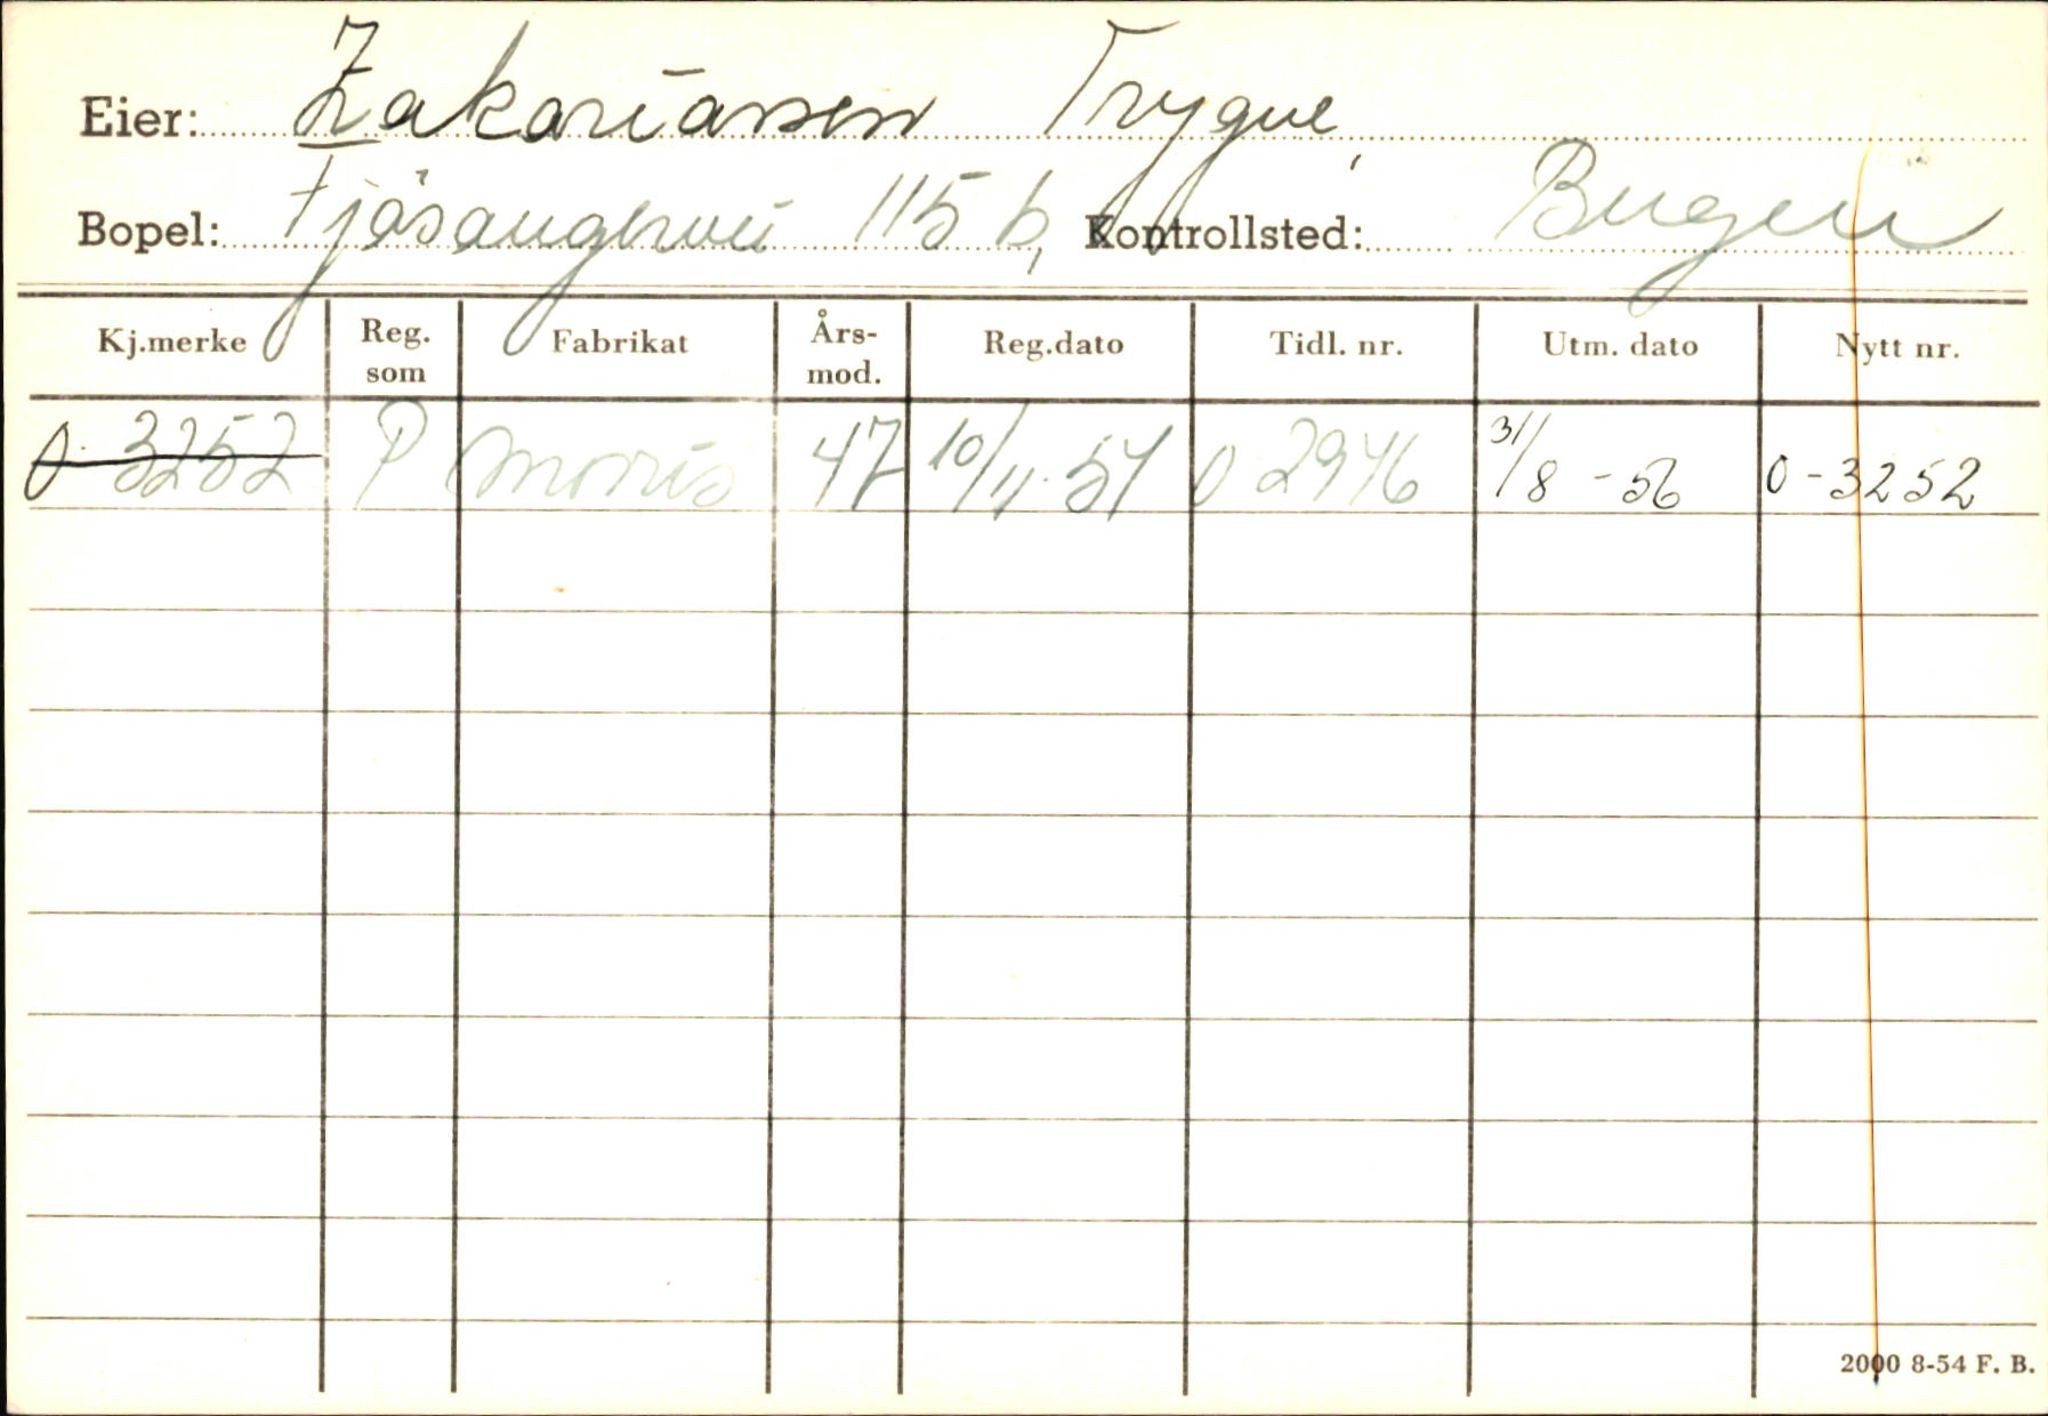 Eier: Zakariassen Trygve,
Bopel: Fjøsangervei 115 b, Kontrollsted: Bergen
Kj.merke Reg. som Fabrikat Års-mod. Reg.dato Tidl. nr. Utm. dato Nytt nr.
O-3252 P Morris 47 10/11-54 O 2946 31/8-56 O-3252
2000 8-54 F. B.